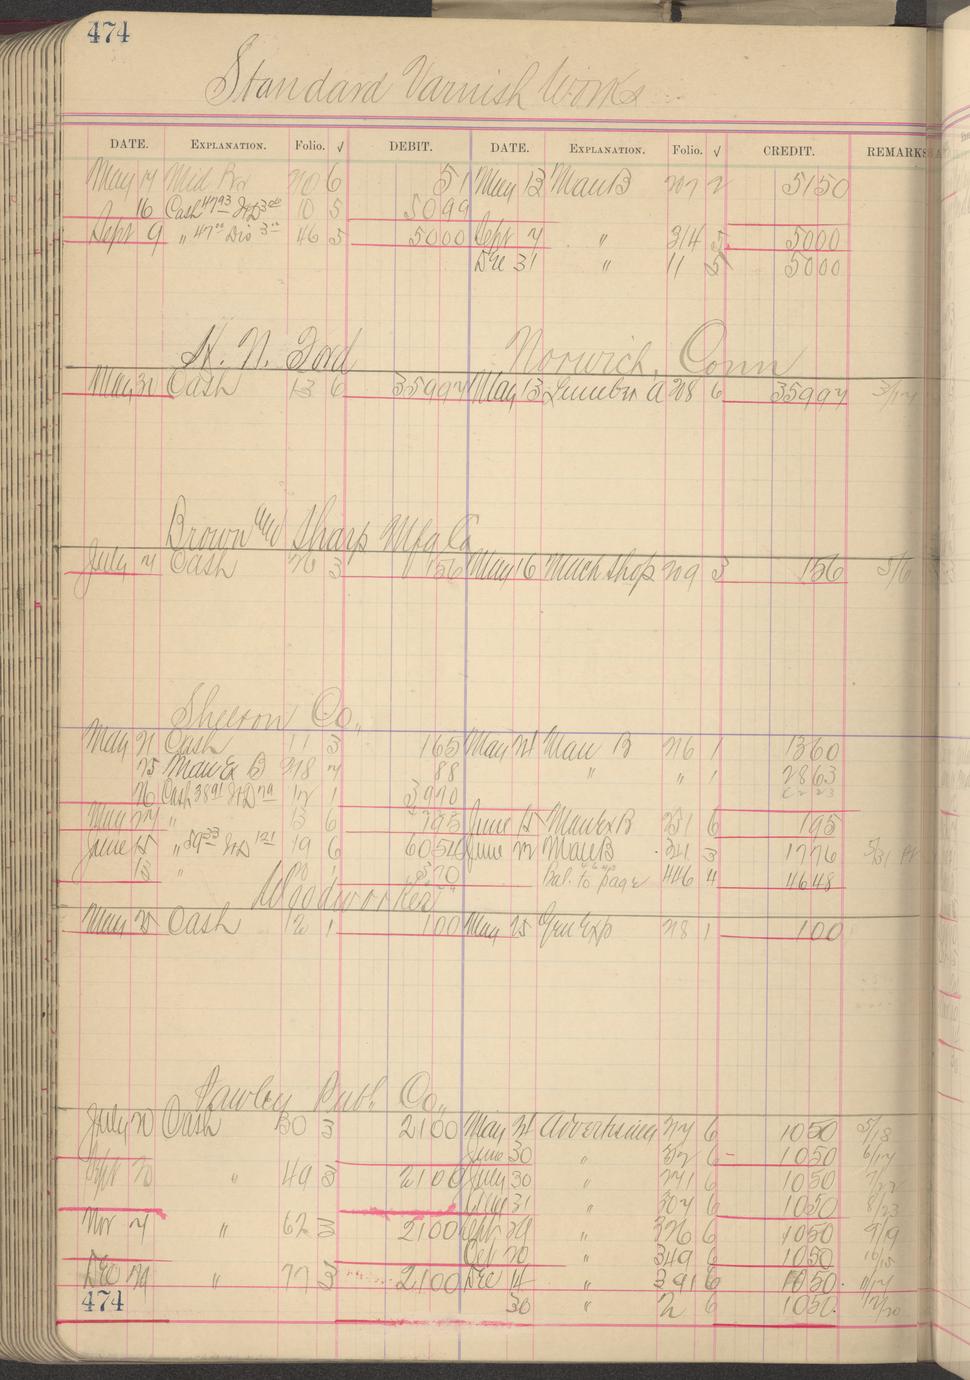 474
Standard Varnish Works
DATE. EXPLANATION. Folio. √ DEBIT. DATE. EXPLANATION. Folio. √ CREDIT. REMARKS
May 7 6 51 May 13 Man B 207 2 5150
16 Cash 47 93 10 5 5099
Sept 9 " 47 Dis 3 46 5 5000 Sept 7 " 314 5 5000
Dec 31 " 11 5 5000
H. N. Ford Norwich, Conn
May 31 Cash 13 6 35997 May 13 Lumber a 208 6 35997
Brown and Sharp Mfg Co
July 7 Cash 26 3 156 May 16 Mach Shop 209 3 156 5/6
Co.
May 21 Cash 11 3 165 May 21 Man B 216 1 1360
25 Man Ex B 218 7 88 " " 1 2863
26 Cash 38 91 12 1 3970
May 27 " 13 6 195 June 15 Man Ex B 231 6 195
June 15 " 59 33 121 19 6 6054 June 22 Man B 3 1776
13 " 570 Bal. to page 446 4 4648
Woodworker
May 25 Cash 12 1 100 May 25 Gen Exp 218 1 100
Publ. Co.,
July 20 Cash 30 3 2100 May 21 Advertising 6 1050 5/18
June 30 " 6 1050 6/17
Sept 20 " 49 3 2100 July 30 " 271 6 1050
Aug 31 " 307 6 1050 8/23
Nov 7 " 62 3 2100 Sept " 326 6 1050 9/19
Oct 20 " 349 6 1050 10/15
Dec 29 " 77 3 2100 Dec 14 " 391 6 1050 11/17
474 30 " 2 6 1050 12/20